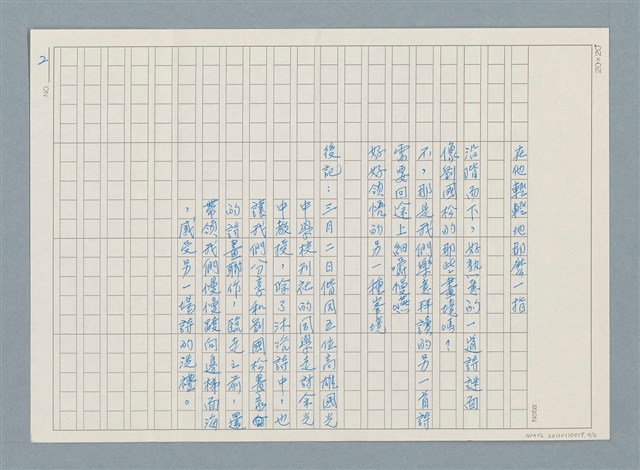 20×20
在他輕輕地那麼一指
沿階而下，好熟悉的一道詩謎面
像劉國松的那些畫境嗎？
不，那是我們樂意拜讀的另一首詩
需要回途上細嚼慢嚥
好好領悟的另一種峯境
後記：三月二日偕同五位高雄國光
中學校刊社的同學走訪余光
中教授，除了沐浴詩中，也
讓我們分享和劉國松畫家
的詩畫聯作，臨走之前，還
帶領我們慢慢踱向邊梯面海
，感受另一場詩的洗禮。
NO. 2
Note